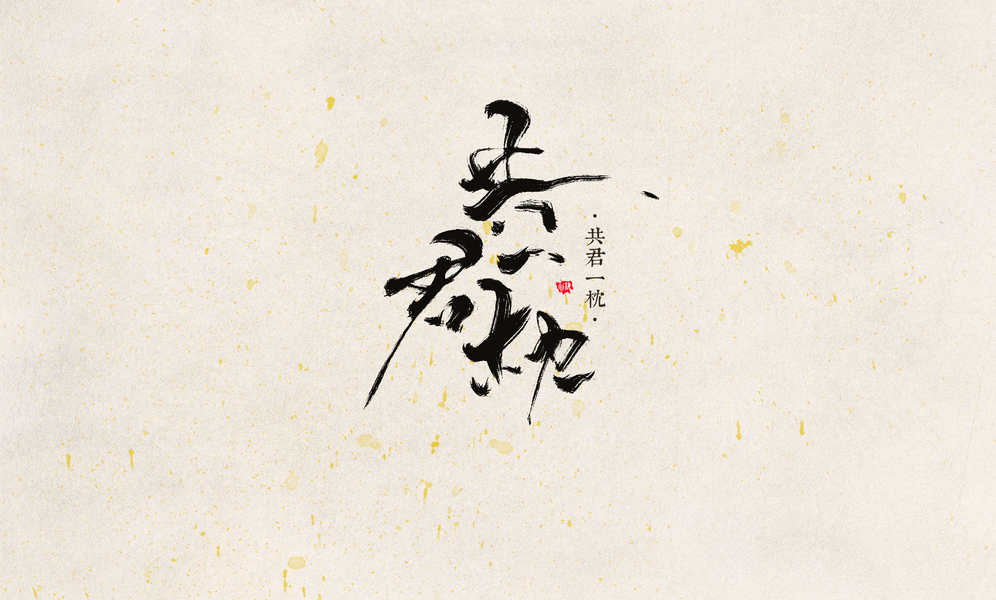 共君一枕
·共君一枕·